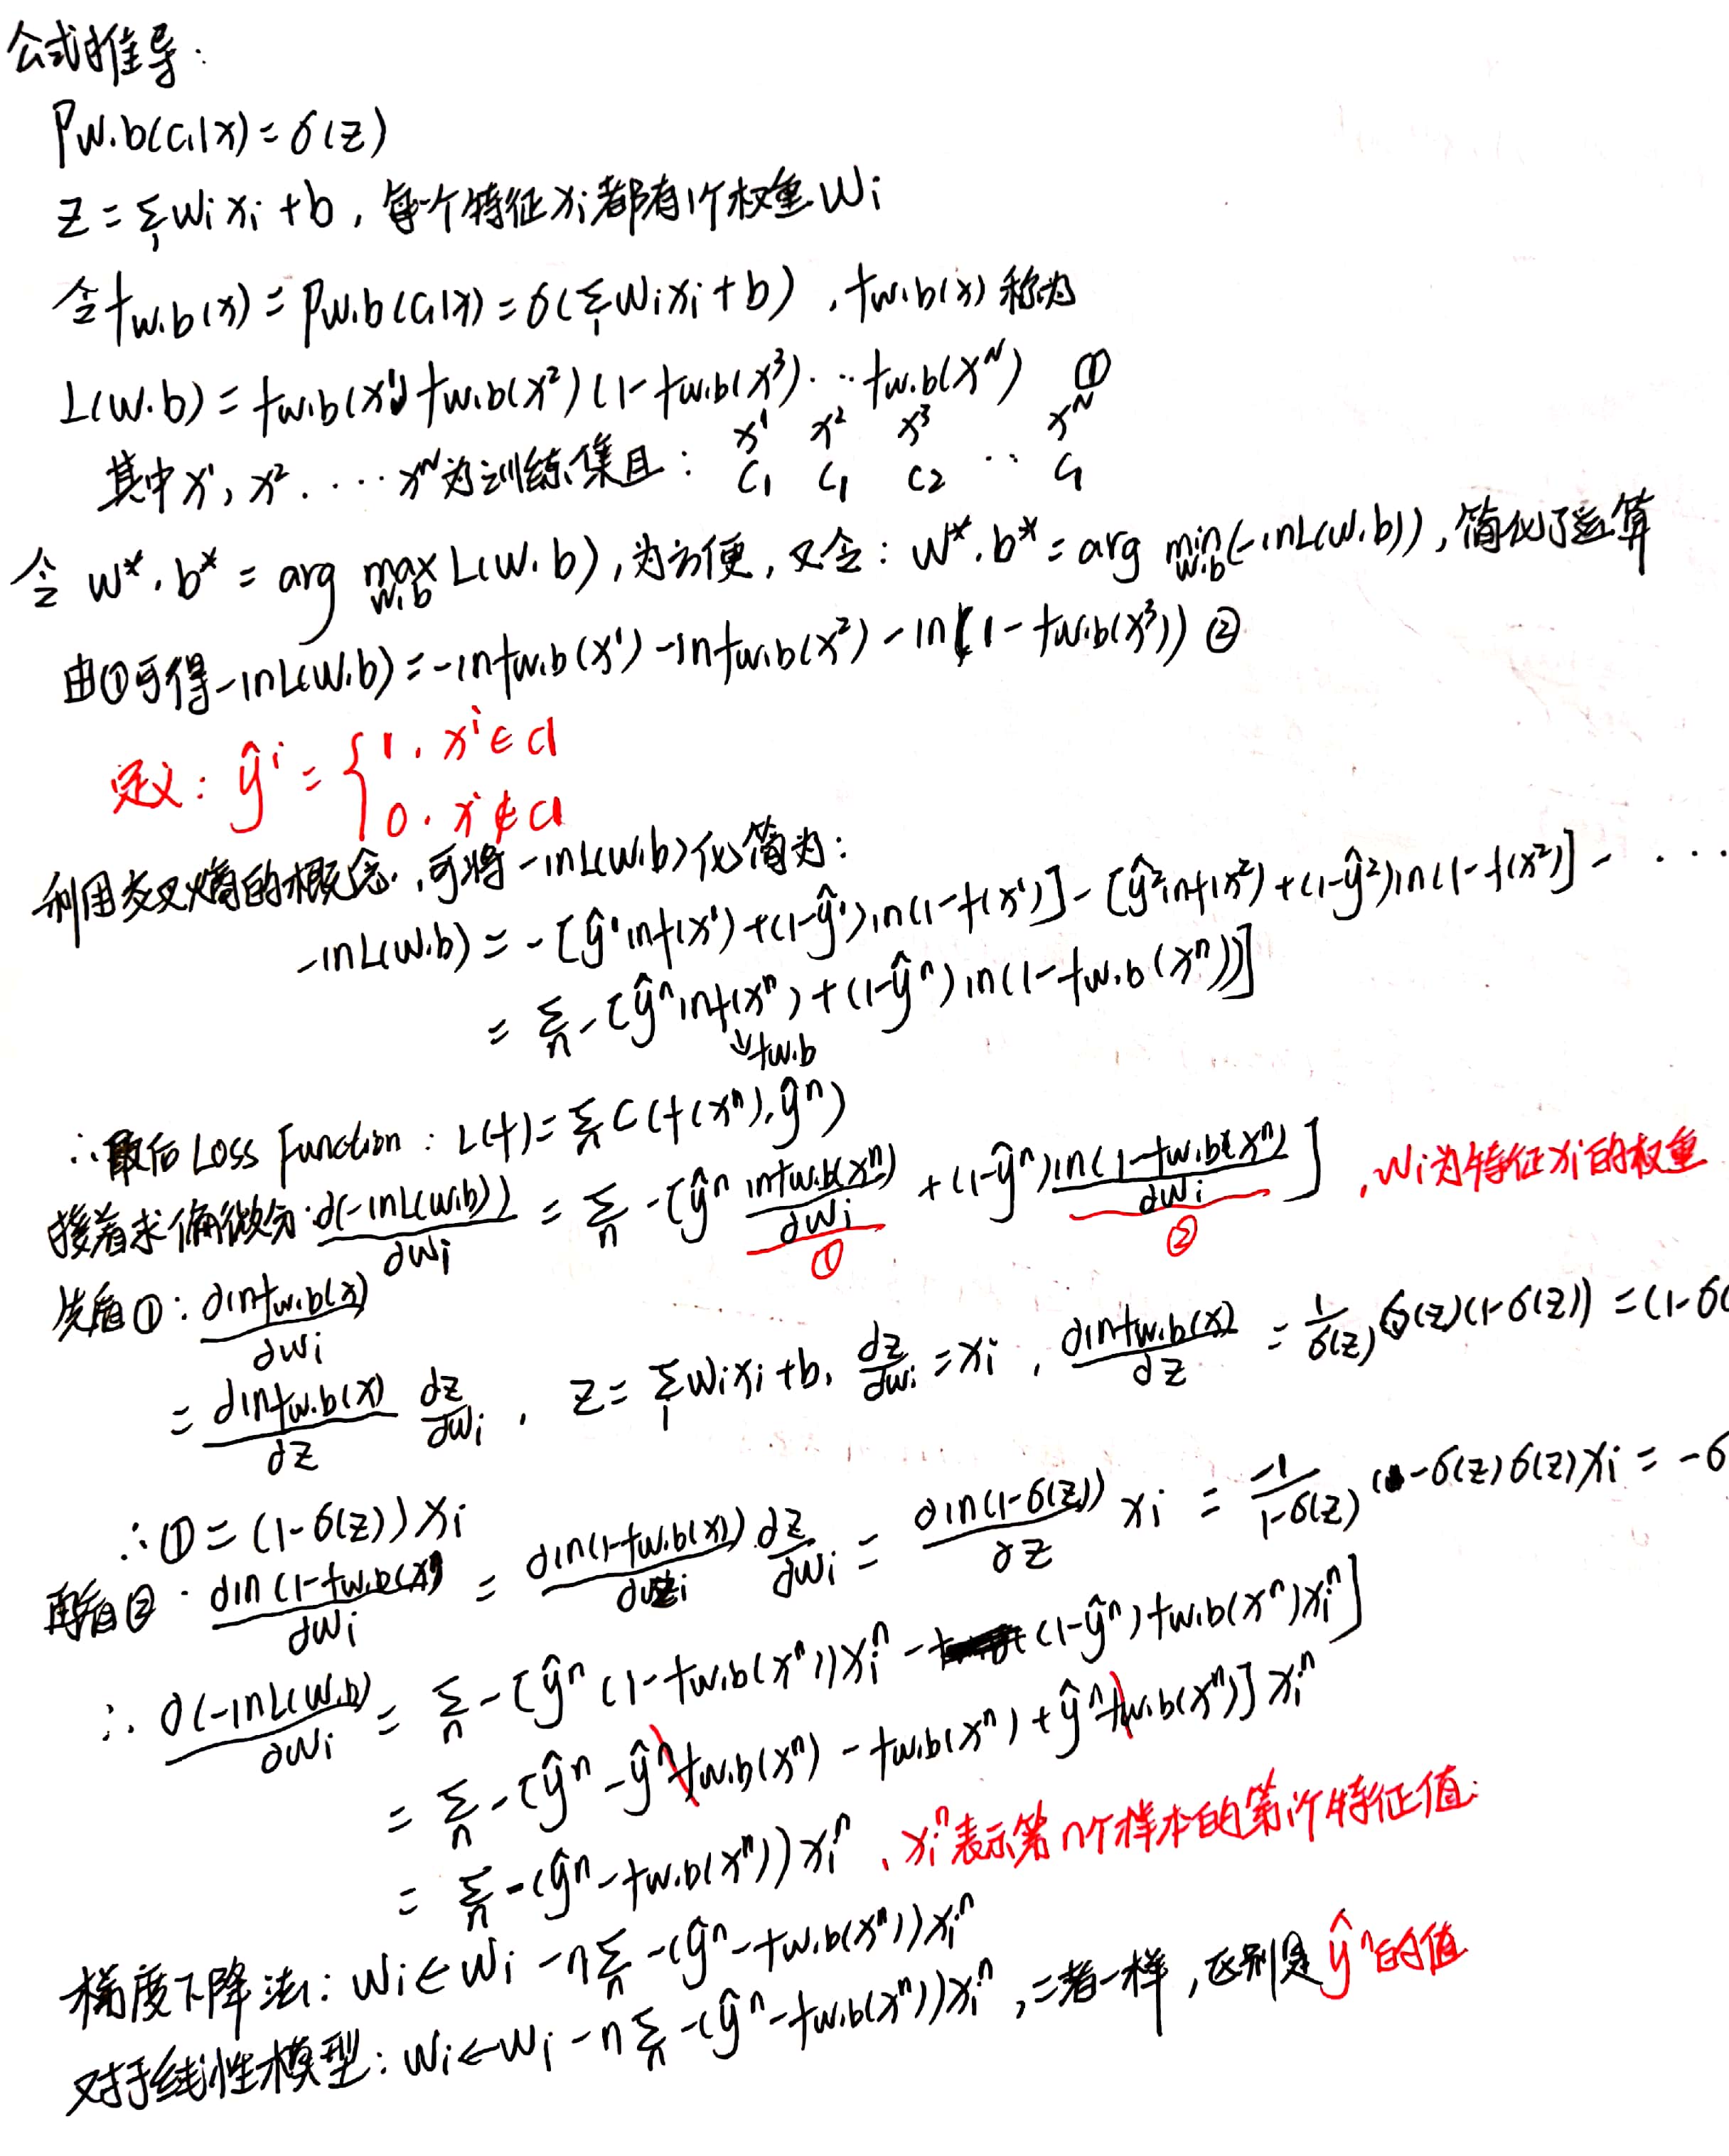 公式推导:
Pw.b(C₁|x) = σ(z)
z = Σᵢ wᵢxᵢ + b, 每个特征xᵢ都有1个权重wᵢ
令fw.b(x) = Pw.b(C₁|x) = σ(Σᵢ wᵢxᵢ + b), fw.b(x) 称为
L(w.b) = fw.b(x¹) fw.b(x²) (1-fw.b(x³)‥‥fw.b(x^N) ①
其中x¹, x². ‥‥ x^N为训练集且: x¹ x² x³ x^N
C₁ C₁ C₂ ‥ C₁
令 w*.b* = arg max_{w.b} L(w.b), 为方便, 又令: w*.b* = arg min_{w.b}(-lnL(w.b)), 简化了运算
由①可得-lnL(w.b) = -lnfw.b(x¹) -lnfw.b(x²) -ln(1-fw.b(x³)) ②
定义: ŷⁱ = { 1. xⁱ∈C1
0. xⁱ∉C1
利用交叉熵的概念, 可将-lnL(w.b)化简为:
-lnL(w.b) = -[ŷ¹lnf(x¹)+(1-ŷ¹)ln(1-f(x¹)]-[ŷ²lnf(x²)+(1-ŷ²)ln(1-f(x²)]- ‥‥
= Σₙ -[ŷⁿlnf(xⁿ)+(1-ŷⁿ)ln(1-fw.b(xⁿ))]
↓fw.b
∴最后 Loss Function: L(f) = Σₙ C(f(xⁿ), ŷⁿ)
接着求偏微分: ∂(-lnL(w.b))/∂wᵢ = Σₙ -[ŷⁿ lnfw.b(xⁿ)/∂wᵢ + (1-ŷⁿ) ln(1-fw.b(xⁿ)/∂wᵢ ], wᵢ为特征xᵢ的权重
① ②
先看①: ∂lnfw.b(x)/∂wᵢ
= ∂lnfw.b(x)/∂z ∂z/∂wᵢ, z = Σᵢ wᵢxᵢ + b, ∂z/∂wᵢ = xᵢ, ∂lnfw.b(x)/∂z = 1/σ(z) σ(z)(1-σ(z)) = (1-σ(
∴① = (1-σ(z))xᵢ
再看②: ∂ln(1-fw.b(x)/∂wᵢ = ∂ln(1-fw.b(x))/∂z ∂z/∂wᵢ = ∂ln(1-σ(z))/∂z xᵢ = -1/1-σ(z) (1-σ(z)σ(z)xᵢ = -σ
∴ ∂(-lnL(w.b)/∂wᵢ = Σₙ -[ŷⁿ(1-fw.b(xⁿ))xᵢⁿ - (1-ŷⁿ)fw.b(xⁿ)xᵢⁿ]
= Σₙ -[ŷⁿ-ŷⁿfw.b(xⁿ) - fw.b(xⁿ) + ŷⁿfw.b(xⁿ)]xᵢⁿ
= Σₙ -(ŷⁿ-fw.b(xⁿ))xᵢⁿ, xᵢⁿ表示第n个样本的第i个特征值.
梯度下降法: wᵢ ← wᵢ - η Σₙ -(ŷⁿ-fw.b(xⁿ))xᵢⁿ
对于线性模型: wᵢ ← wᵢ - η Σₙ -(ŷⁿ-fw.b(xⁿ))xᵢⁿ, 二者一样, 区别是ŷⁿ的值